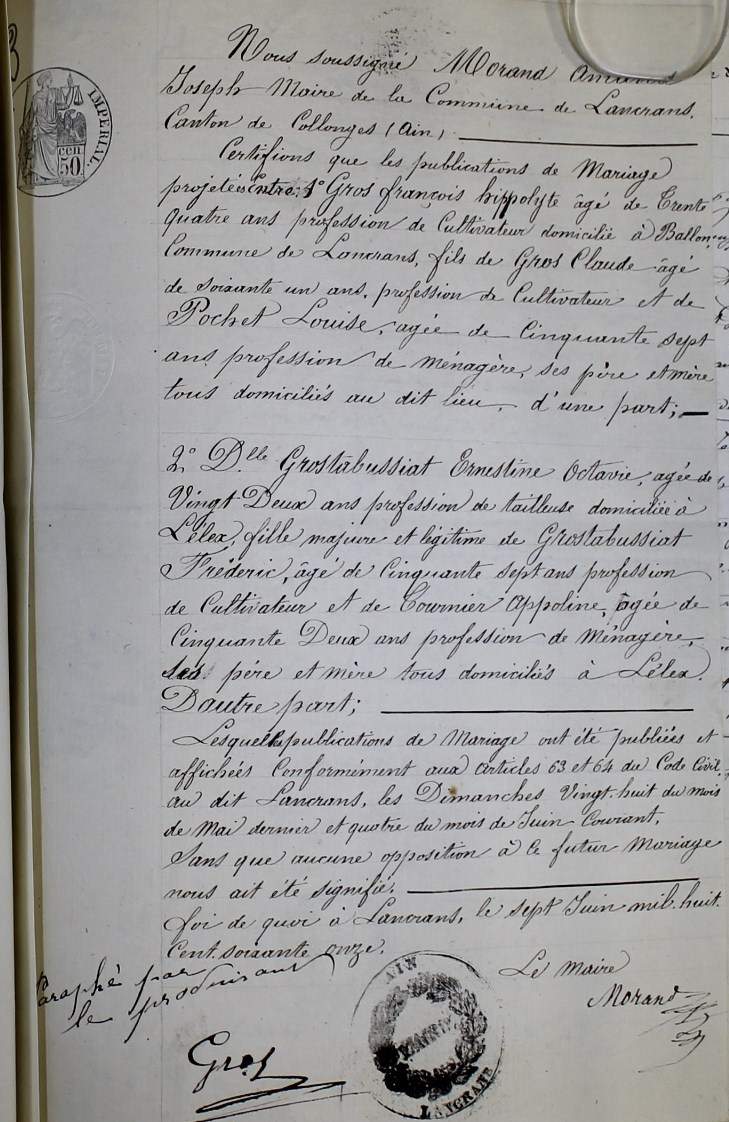 IMPERIAL.
CEN
50
Nous soussigné Morand
Joseph Maire de la Commune de Lancrans.
Canton de Collonges (Ain)
Certifions que les publications de Mariage
projetées Entre: 1° Gros françois hippolyte âgé de Trente
quatre ans profession de Cultivateur domicilié à Ballon,
Commune de Lancrans, fils de Gros Claude âgé
de soixante un ans, profession de Cultivateur et de
Pochet Louise, agée de Cinquante sept
ans, profession de ménagère, ses père et mère
tous domiciliés au dit lieu, d'une part;
2° Dlle Grostabussiat Ernestine Octavie, agée de
Vingt Deux ans profession de tailleuse domiciliée à
Lélex, fille majeure et légitime de Grostabussiat
Fréderic, âgé de Cinquante sept ans profession
de Cultivateur et de Tournier Appoline, agée de
Cinquante Deux ans profession de Ménagère,
ses père et mère tous domiciliés à Lélex.
D'autre part;
Lesquelles publications de Mariage ont été publiées et
affichées Conformément aux articles 63 et 64 du Code Civil,
au dit Lancrans, les Dimanches Vingt-huit du mois
de Mai dernier et quatre du mois de Juin Courant.
Sans que aucune opposition à ce futur Mariage
nous ait été signifié.
foi de quoi à Lancrans, le sept Juin mil-huit-
Cent-soixante onze.
Le Maire
Morand
Paraphé par
le produisant
Gros
AIN
MAIRIE
LANCRANS